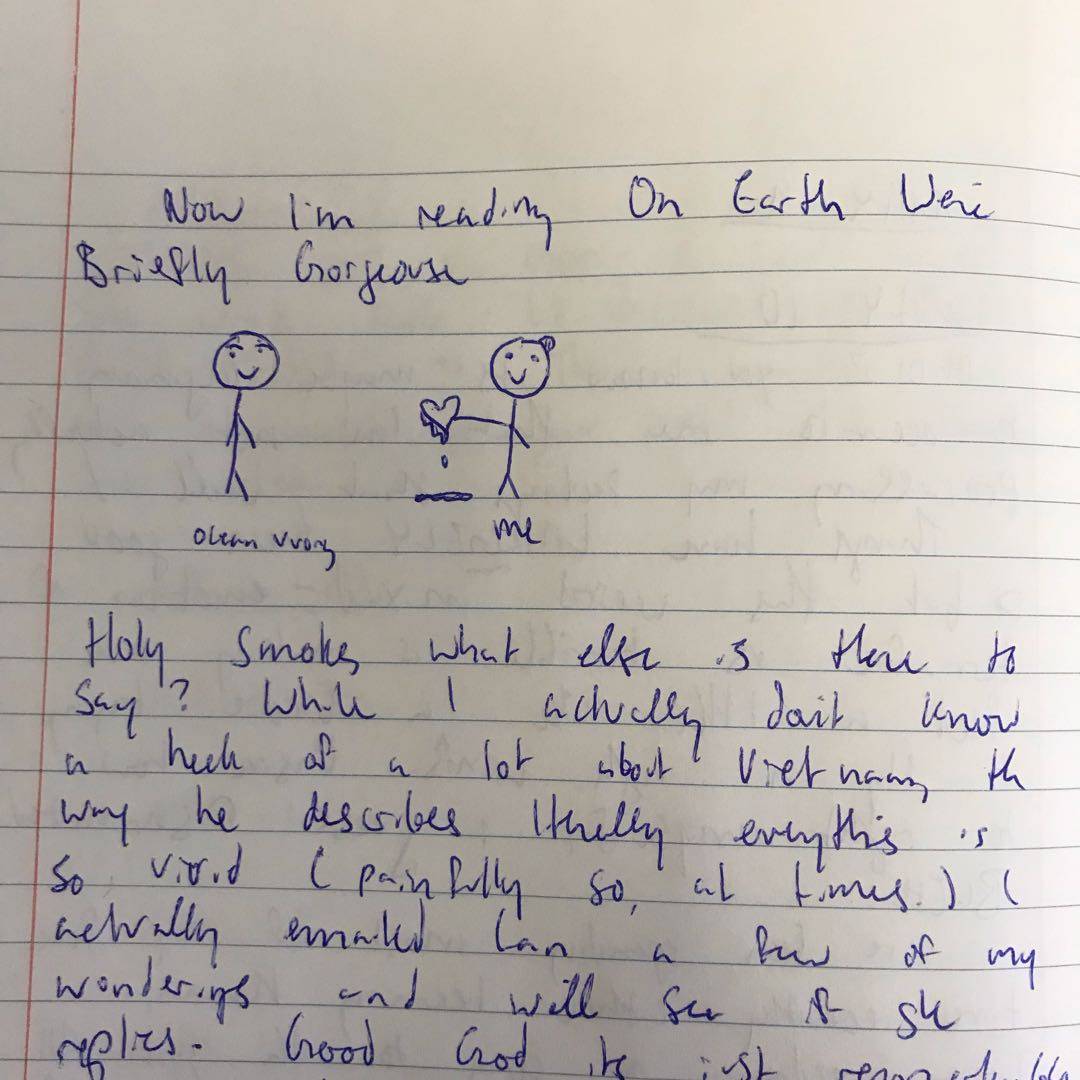 Now I'm reading On Earth We're
Briefly Gorgeous
Ocean Vuong
me
Holy smokes what else is there to
say? While I actually don't know
a heck of a lot about Vietnam, the
way he describes literally everything is
so vivid (painfully so, at times.) I
actually emailed Lan a few of my
wonderings and will see if she
replies. Good God its just